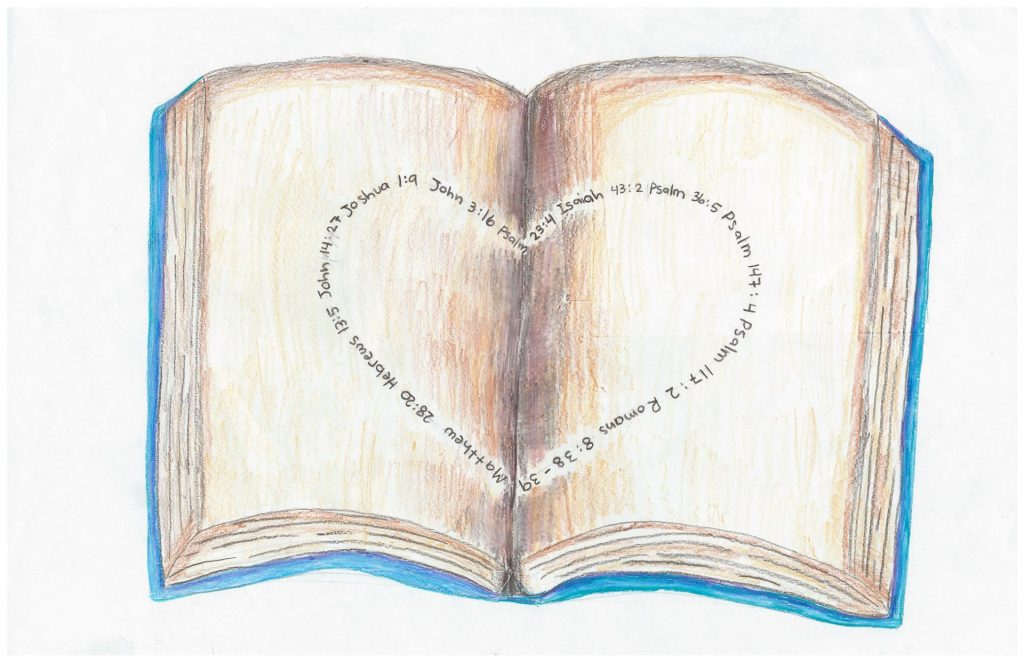 Psalm 23:4 Isaiah 43:2 Psalm 36:5 Psalm 147:4 Psalm 117:2 Romans 8:38-39
Matthew 28:20 Hebrews 13:5 John 14:27 Joshua 1:9 John 3:16